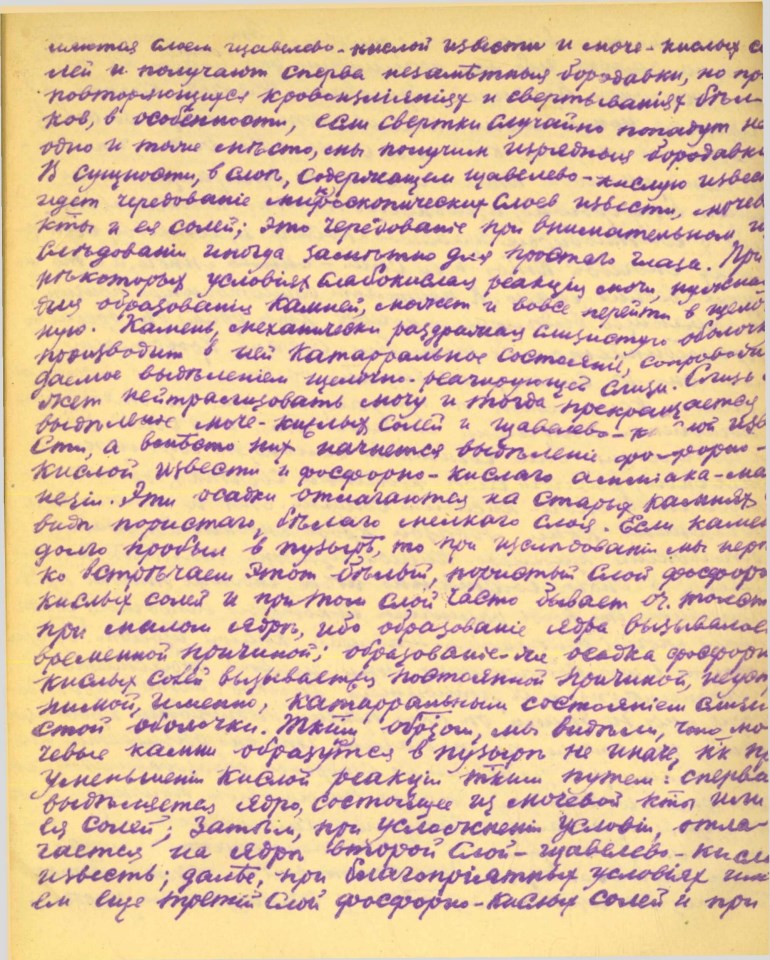 слоем щавелево-кислой извести и моче-кислых со
лей и получают сперва незамѣтныя бородавки, но при
повторяющихся кровоизліяніях и свертываніях бѣл-
ков, в особенности, если свертки случайно попадут на
одно и тоже мѣсто, мы получим изрядныя бородавки
В сущности, в слоѣ, содержащем щавелево-кислую извес
идет чередованіе микроскопических слоев извести, мочев
кты и ея солей; это чередованіе при внимательном и
слѣдованіи иногда замѣтно для простаго глаза. При
нѣкоторых условіях слабокислая реакція мочи, нужна
для образованія камней, может и вовсе перейти в щелоч
ную. Камень, механически раздражая слизистую оболочк
производит в ней катарральное состояніе, сопровож
даемое выдѣленіем щелочно-реагирующей слизи. Слизь м
жет нейтрализовать мочу и тогда прекращается
выдѣленіе моче-кислых солей и щавелево-к лой изве
сти, а вмѣсто них начнется выдѣленіе фосфорно-
кислой извести и фосфорно-кислаго амміака-маг
незіи. Эти осадки отлагаются на старых камнях в
видѣ пористаго, бѣлаго мелкаго слоя. Если камен
долго пробыл в пузырѣ, то при изслѣдованіи мы нерѣ
ко встрѣчаем этот бѣлый, пористый слой фосфорно
кислых солей и притом слой часто бывает оч. толст
при малом ядрѣ, ибо образованіе ядра вызывалос
временной причиной; образованіе-же осадка фосфорн
кислых солей вызывается постоянной причиной,
именно, катарральным состояніем слизи
стой оболочки. Тким образом, мы видѣли, что мо
чевые камни образуются в пузырѣ не иначе, кк пр
уменьшеніи кислой реакціи тким путем: сперва
выдѣляется ядро, состоящее из мочевой кты или
ея солей; затѣм, при условіи, отла-
гается на ядрѣ второй слой - щавелево-кисла
известь; далѣе, при благопріятных условіях имѣ
ем еще третій слой фосфорно-кислых солей и при